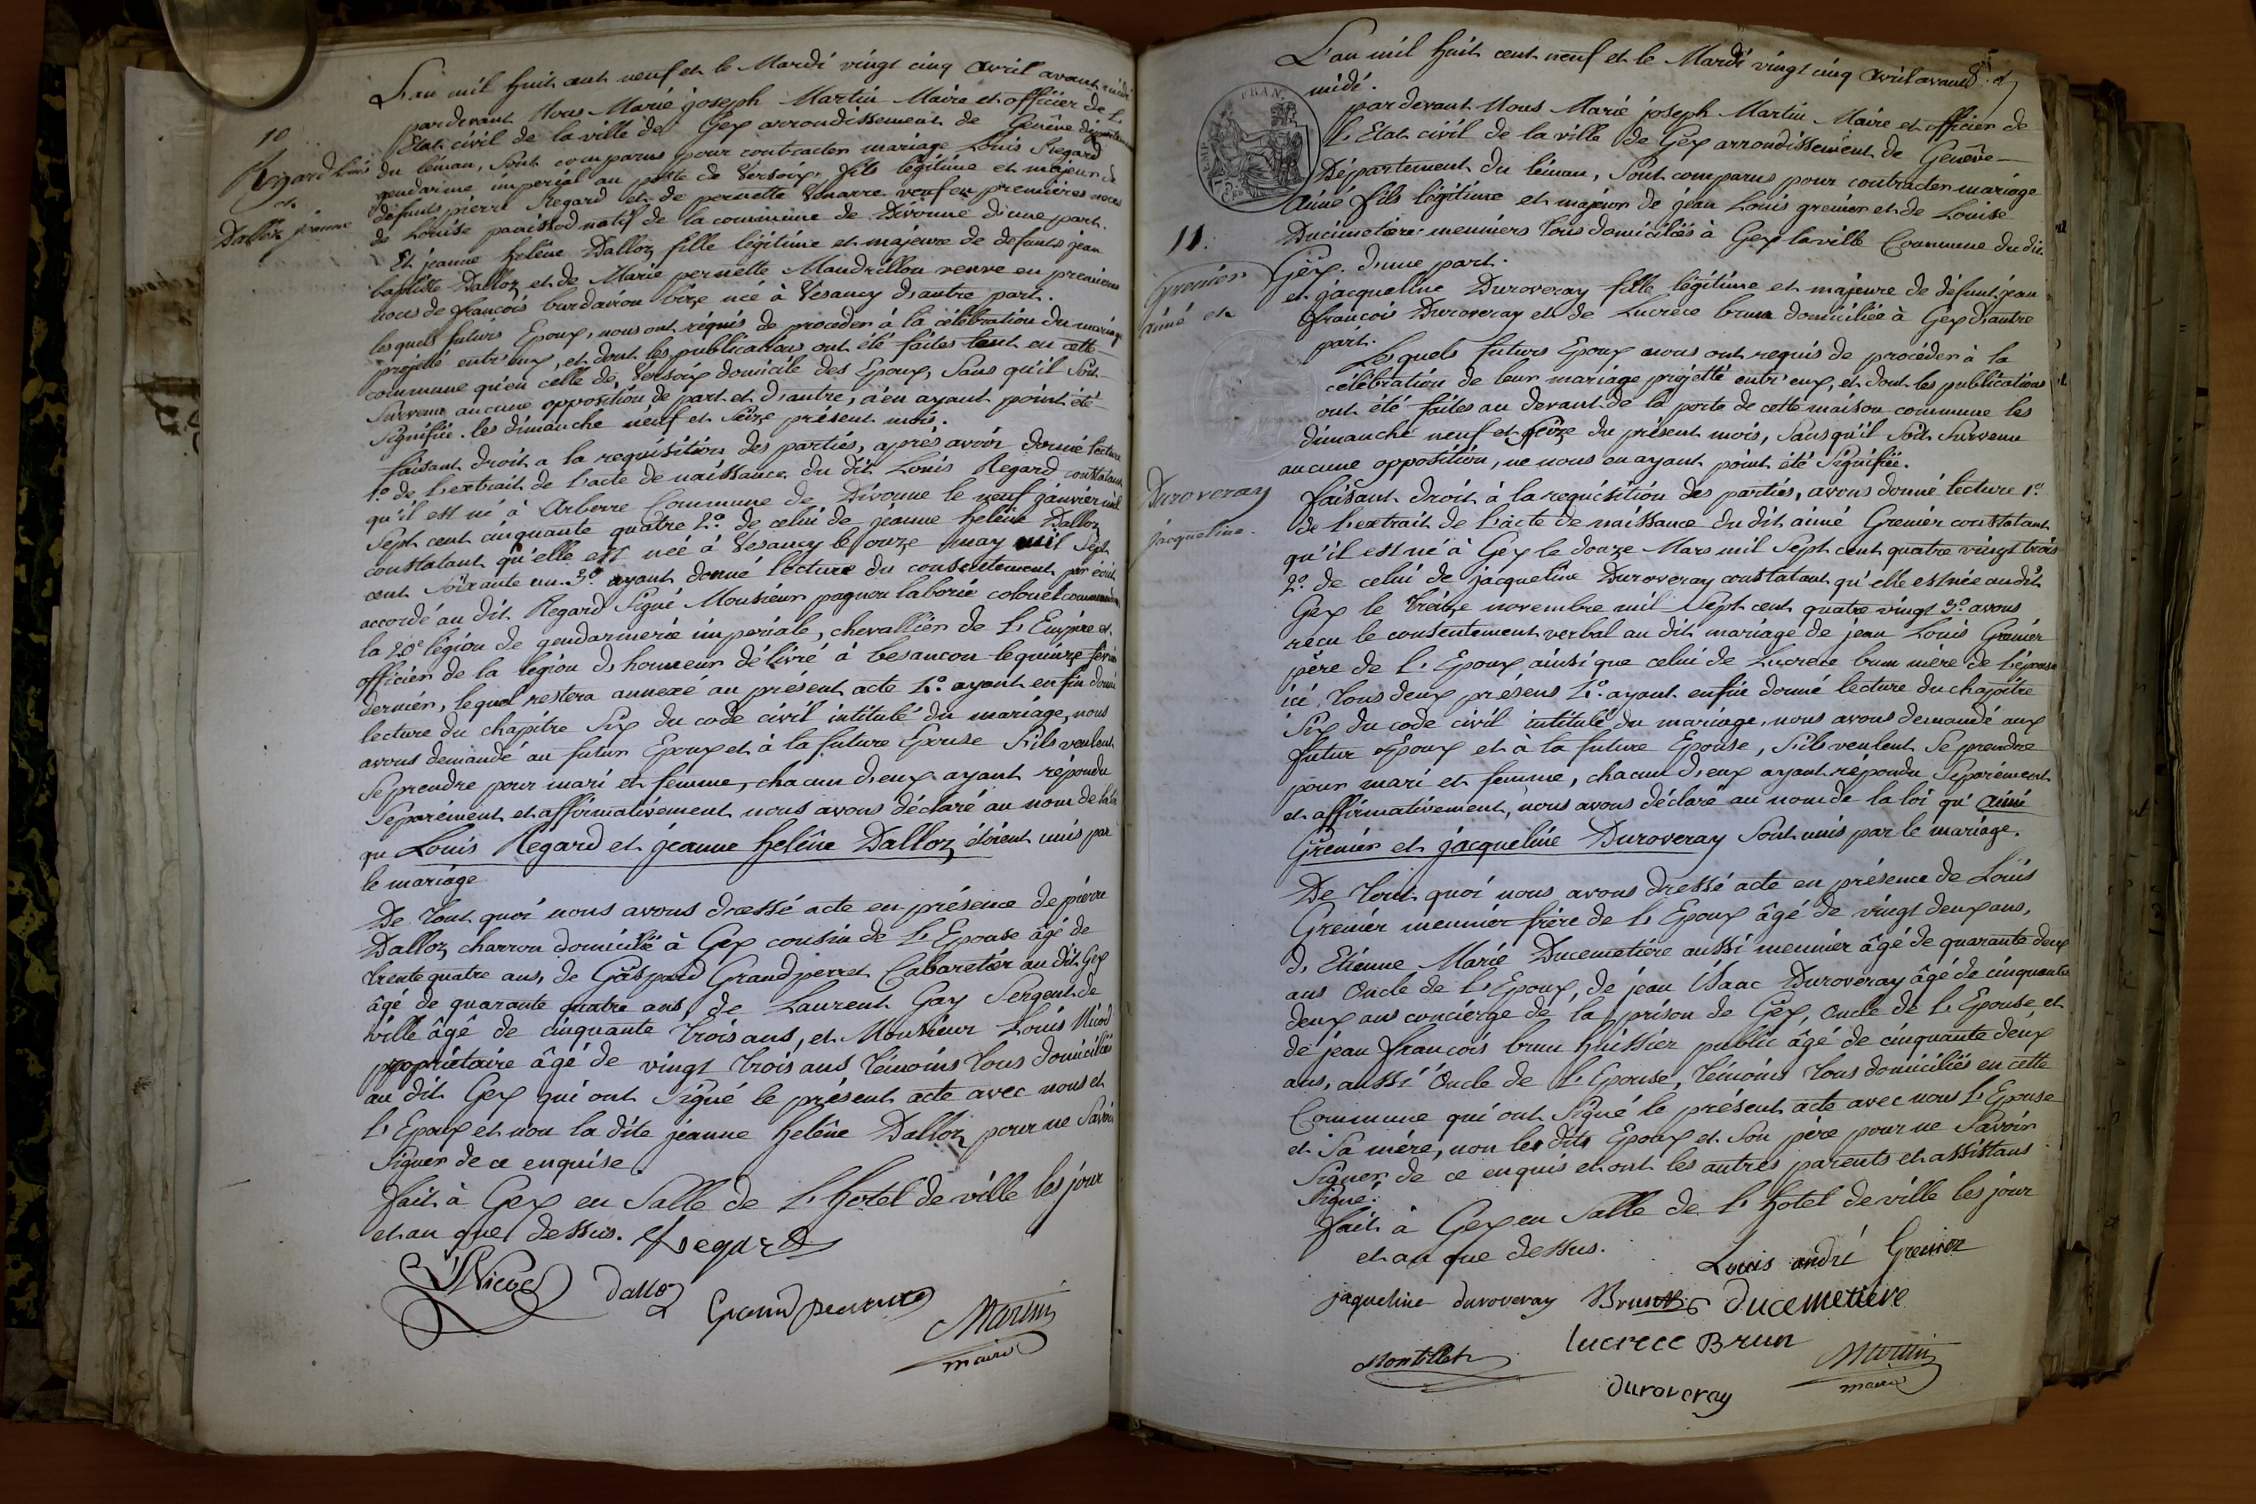 L'an mil huit cent neuf et le Mardi vingt cinq avril avant midi
pardevant Nous Marie joseph Martin Maire et officier de L'
Etat civil de la ville de Gex arrondissement de Genève département
10
du léman, Sont comparus pour contracter mariage Louis Regard
Regard Louis
gendarme impérial au poste de Versoix, fils légitime et majeur de
et
défunts pierre Regard et de pernette Venarre veuf en premières noces
Dalloz jeanne
de Louise paaissod natif de la commune de Divonne d'une part.
Et jeanne heléne Dalloz fille légitime et majeure de defunts jean
baptiste Dalloz et de Marie pernette Mandrillon veuve en premieres
noces de françois burdairon bize née à Vesancy d'autre part.
lesquels futurs Epoux, nous ont réquis de proceder à la célébration du mariage
projetté entr'eux, et dont les publications ont été faites tant en cette
commune qu'en celle de Versoix domicile des Epoux, Sans qu'il soit
Survenu aucune opposition de part et d'autre, n'en ayant point été
Signifiée. les dimanche neuf et Seize présent mois.
faisant droit a la requisition des parties, après avoir donné lecture
1.º de L'extrait de L'acte de naissance du dit Louis Regard constatant
qu'il est né à Arberre Commune de Divonne le neuf janvier mil
Sept cent cinquante quatre 2.º de celui de jeanne heléne Dalloz
constatant qu'elle est née à Vesancy le onze may mil Sept
cent Soixante un. 3.º ayant donné lecture du consentement par écrit
accordé au dit Regard Signé Monsieur pagnon laborie colonel commandant
la 20e légion de gendarmerie impériale, chevallier de L'Empire et
officier de la légion d'honneur délivré à besancon le quinze février
dernier, lequel restera annexé au présent acte 4.º ayant enfin donné
lecture du chapitre Six du code civil intitulé du mariage, nous
avons demandé au futur Epoux et à la future Epouse S'ils veulent
Se prendre pour mari et femme, chacun d'eux ayant répondu
Séparément et affirmativement nous avons déclaré au nom de la loi
qu Louis Regard et jeanne heléne Dalloz étoient unis par
le mariage
De tout quoi nous avons dressé acte en présence de pierre
Dalloz charron domicilié à Gex cousin de L'Epouse âgé de
trente quatre ans, de Gaspard Grandperret Cabaretier au dit Gex
âgé de quarante quatre ans, de Laurent Gay Sergent de
ville âgé de cinquante trois ans, et Monsieur Louis Nicod
propriétaire âgé de vingt trois ans témoins tous domiciliés
au dit Gex qui ont Signé le présent acte avec nous et
L'Epoux et non la dite jeanne heléne Dalloz pour ne Savoir
Signer de ce enquise.
fait à Gex en Salle de L'hotel de ville les jour
et an que dessus. Regard
Nicod Dalloz Grandperret Martin
maire
L'an mil huit cent neuf et le Mardi vingt cinq avril avant
midi.
pardevant Nous Marie joseph Martin Maire et officier de
L'Etat civil de la ville de Gex arrondissement de Genève
Département du léman, Sont comparus pour contracter mariage
Aimé fils légitime et majeur de jean Louis grenier et de Louise
11.
Ducimetiere meuniers tous domiciliés à Gex la ville Commune du dit
Gex. d'une part.
Grenier
et jacqueline Duroveray fille légitime et majeure de défunt jean
aimé et
françois Duroveray et de Lucrèce brun domiciliée à Gex d'autre
part.
Lesquels futurs Epoux nous ont requis de procéder à la
célébration de leur mariage projetté entr'eux, et dont les publications
ont été faites au devant de la porte de cette maison commune les
dimanche neuf et seize du présent mois, Sans qu'il Soit Survenu
aucune opposition, ne nous en ayant point été Signifiée.
Duroveray
jacqueline.
faisant droit à la requisition des parties, avons donné lecture 1.º
de L'extrait de L'acte de naissance du dit aimé Grenier constatant
qu'il est né à Gex le douze Mars mil Sept cent quatre vingt trois
2.º de celui de jacqueline Duroveray constatant qu'elle est née au dit
Gex le treize novembre mil Sept cent quatre vingt 3.º avons
reçu le consentement verbal au dit mariage de jean Louis Grenier
père de L'Epoux ainsi que celui de Lucrece brun mère de L'épouse
ici tous deux présens 4.º ayant enfin donné lecture du chapitre
Six du code civil intitulé du mariage, nous avons demandé aux
futur Epoux et à la future Epouse, S'ils veulent Se prendre
pour mari et femme, chacun d'eux ayant répondu Séparément
et affirmativement, nous avons déclaré au nom de la loi qu' aimé
Grenier et jacqueline Duroveray Sont unis par le mariage.
De tout quoi nous avons dressé acte en présence de Louis
Grenier meunier frère de L'Epoux âgé de vingt deux ans,
d'Etienne Marie Ducemetiére aussi meunier âgé de quarante deux
ans Oncle de L'Epoux, de jean Isaac Duroveray âgé de cinquante
deux ans concierge de la prison de Gex, Oncle de L'Epouse, et
de jean françois brun huissier public âgé de cinquante deux
ans, aussi Oncle de L'Epouse, témoins tous domiciliés en cette
Commune qui ont Signé le présent acte avec nous L'Epouse
et Sa mère, non les dits Epoux et Son père pour ne Savoir
Signer de ce enquis et ont les autres parents et assistans
Signé.
fait à Gex en Salle de L'hotel de ville les jour
et an que dessus.
Louis andré Grenier
jaqueline duroveray Brun Ducemetiére
lucrece Brun
Montillet Martin
maire
duroveray